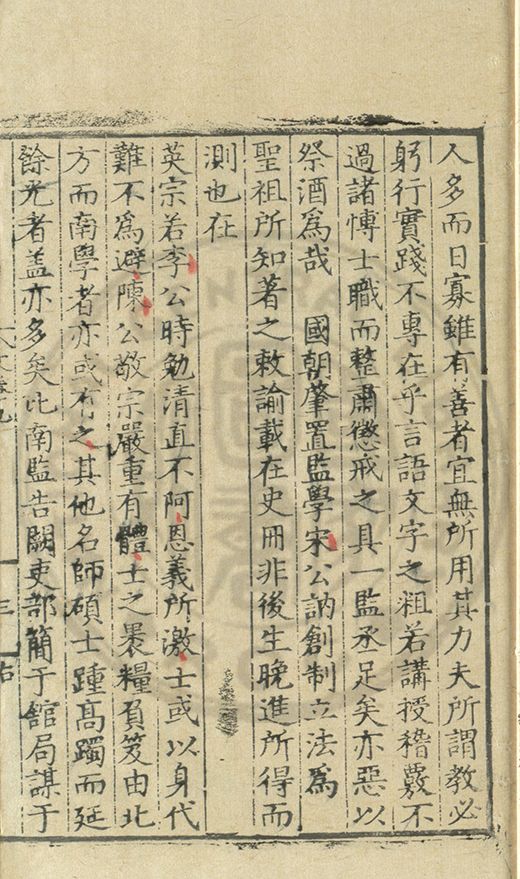 人多而日寡雖有善者宜無所用其力夫所謂教必
躬行實踐不專在乎言語文字之粗若講授稽覈不
過諸博士職而整肅懲戒之具一監丞足矣亦惡以
祭酒為哉　國朝肇置監學宋公訥創制立法為
聖祖所知著之敕諭載在史冊非後生晚進所得而
測也在
英宗若李公時勉清直不阿恩義所激士或以身代
難不為避陳公敬宗嚴重有體士之褁糧負笈由北
方而南學者亦或有之其他名師碩士踵高躅而延
餘光者盖亦多矣比南監告闕吏部簡于舘局謀于
三